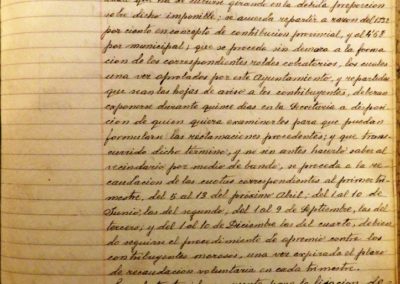 que no ha de incurse girando en la debida proporcion
sobre dicho imponible; se acuerda repartir a razon del
por ciento en concepto de contribucion provincial, y el 4'62
por municipal; que se proceda sin demora a la forma
cion de los correspondientes roldes cobratorios, los cuales
una vez aprobados por este Ayuntamiento, y repartidas
que sean las hojas de aviso a los contribuyentes, deberan
exponerse durante quince dias en la Secretaria a disposi
cion de quien quiera examinarlos para que puedan
formularse las reclamaciones procedentes; y que trans
currido dicho término, y no sin antes hacerlo saber al
vecindario por medio de bando, se proceda a la re
caudacion de las cuotas correspondientes al primer tri
mestre, del 5 al 13 del próximo Abril; del 1 al 10 de
Junio, las del segundo; del 1 al 9 de Septiembre, las del
tercero; y del 1 al 10 de Diciembre las del cuarto, debien
do seguirse el procedimiento de apremio contra los
contribuyentes morosos, una vez expirado el plazo
de recaudacion voluntaria en cada trimestre.